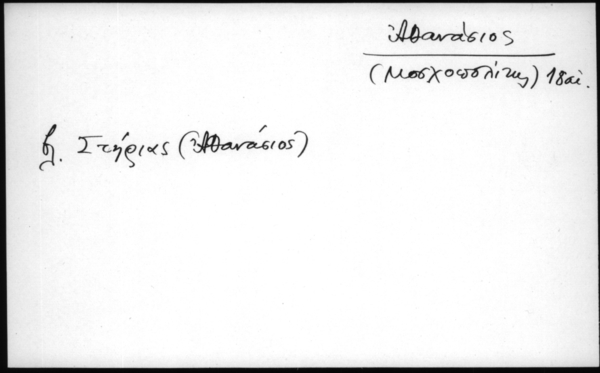 Ἀθανάσιος
(Μοσχοπολίτης) 18 αἰ.
βλ. Στήριας (Ἀθανάσιος)